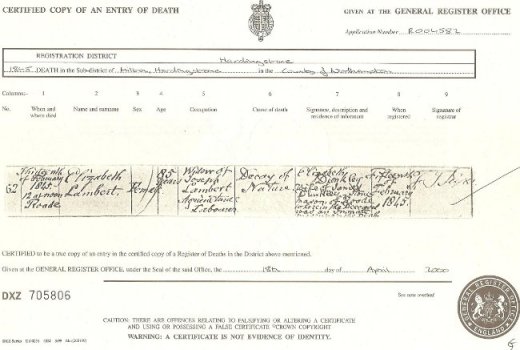 CERTIFIED COPY OF AN ENTRY OF DEATH
GIVEN AT THE GENERAL REGISTER OFFICE
Application Number R004582
REGISTRATION DISTRICT Hardingstone
1845 DEATH in the Sub-district of Milton, Hardingstone in the County of Northampton
Columns:- 1 2 3 4 5 6 7 8 9
No. When and where died Name and surname Sex Age Occupation Cause of death Signature, description and residence of informant When registered Signature of registrar
62 of February 1845 Roade Elizabeth Lambert 85 years Widow of Joseph Lambert Agricultural Labourer Decay of Nature of Roade Fifteenth of February 1845
CERTIFIED to be a true copy of an entry in the certified copy of a Register of Deaths in the District above mentioned.
Given at the GENERAL REGISTER OFFICE, under the Seal of the said Office, the 18th day of April 2000
DXZ 705806
See note overleaf
CAUTION: THERE ARE OFFENCES RELATING TO FALSIFYING OR ALTERING A CERTIFICATE
AND USING OR POSSESSING A FALSE CERTIFICATE ©CROWN COPYRIGHT
WARNING: A CERTIFICATE IS NOT EVIDENCE OF IDENTITY.
GENERAL REGISTER OFFICE
ENGLAND